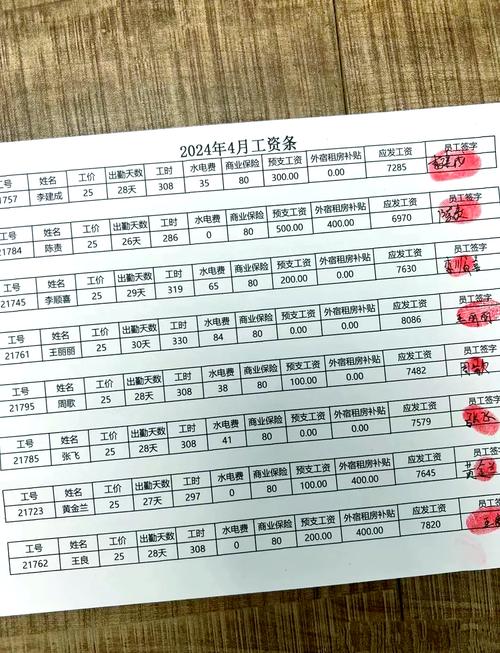 2024年4月工资条
工号 姓名 工价 出勤天数 工时 水电费 商业保险 预支工资 外宿租房补贴 应发工资 员工签字
21757 李建成 25 28天 308 35 80 300.00 0.00 7285
工号 姓名 工价 出勤天数 工时 水电费 商业保险 预支工资 外宿租房补贴 应发工资 员工签字
21784 陈责 25 26天 286 0 80 500.00 400.00 6970
工号 姓名 工价 出勤天数 工时 水电费 商业保险 预支工资 外宿租房补贴 应发工资 员工签字
21745 李顺嘉 25 29天 319 65 80 200.00 0.00 7630
工号 姓名 工价 出勤天数 工时 水电费 商业保险 预支工资 外宿租房补贴 应发工资 员工签字
21761 王丽丽 25 30天 330 84 80 0.00 0.00 8086
工号 姓名 工价 出勤天数 工时 水电费 商业保险 预支工资 外宿租房补贴 应发工资 员工签字
21795 周歌 25 28天 308 38 80 100.00 0.00 7482 周歌
工号 姓名 工价 出勤天数 工时 水电费 商业保险 预支工资 外宿租房补贴 应发工资 员工签字
21785 张飞 25 28天 308 41 80 0.00 0.00 7579 张飞
工号 姓名 工价 出勤天数 工时 水电费 商业保险 预支工资 外宿租房补贴 应发工资 员工签字
21723 黄金兰 25 27天 297 0 80 100.00 400.00 7645
工号 姓名 工价 出勤天数 工时 水电费 商业保险 预支工资 外宿租房补贴 应发工资 员工签字
21762 王良 25 28天 308 0 80 200.00 400.00 7820